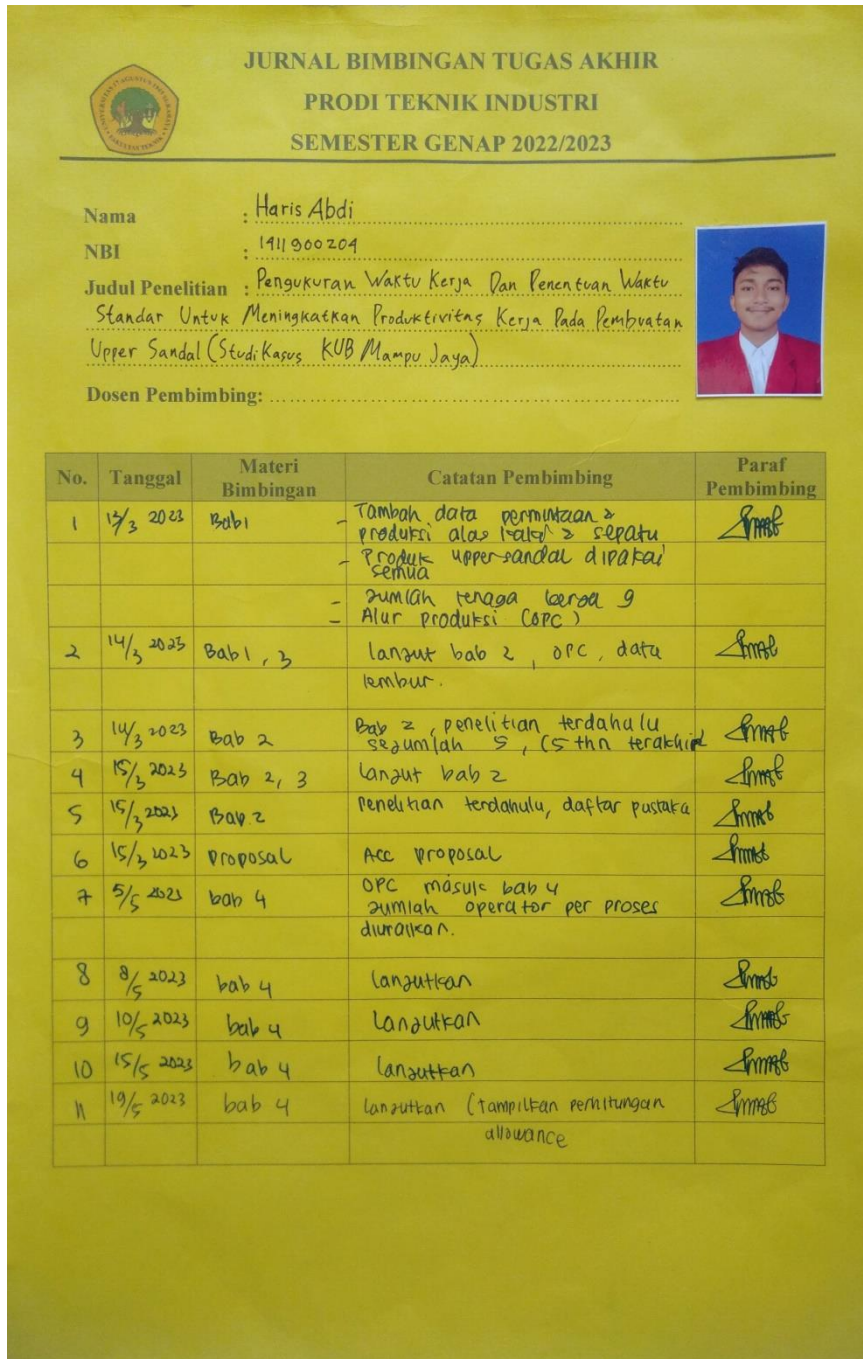 JURNAL BIMBINGAN TUGAS AKHIR
PRODI TEKNIK INDUSTRI
SEMESTER GENAP 2022/2023
Nama : Haris Abdi
NBI : 1911900204
Judul Penelitian : Pengukuran Waktu Kerja Dan Penentuan Waktu
Standar Untuk Meningkatkan Produktivitas Kerja Pada Pembuatan
Upper Sandal (Studi Kasus KUB Mampu Jaya)
Dosen Pembimbing: ..........
No. Tanggal Materi Bimbingan Catatan Pembimbing Paraf Pembimbing
1 13/3 2023 Bab 1 - Tambah data permintaan &
produksi alas kaki & sepatu
- Produk upper sandal dipakai
semua
- Jumlah tenaga kerja 9
- Alur produksi (OPC)
2 14/3 2023 Bab 1, 3 lanjut bab 2, OPC, data
lembur.
3 14/3 2023 Bab 2 Bab 2, penelitian terdahulu
sejumlah 5, (5 thn terakhir
4 15/3 2023 Bab 2, 3 Lanjut bab 2
5 15/3 2023 Bab 2 Penelitian terdahulu, daftar pustaka
6 15/3 2023 Proposal Acc proposal
7 5/5 2023 bab 4 OPC masuk bab 4
Jumlah operator per proses
diuraikan.
8 8/5 2023 bab 4 lanjutkan
9 10/5 2023 bab 4 Lanjutkan
10 15/5 2023 bab 4 lanjutkan
11 19/5 2023 bab 4 lanjutkan (tampilkan perhitungan
allowance